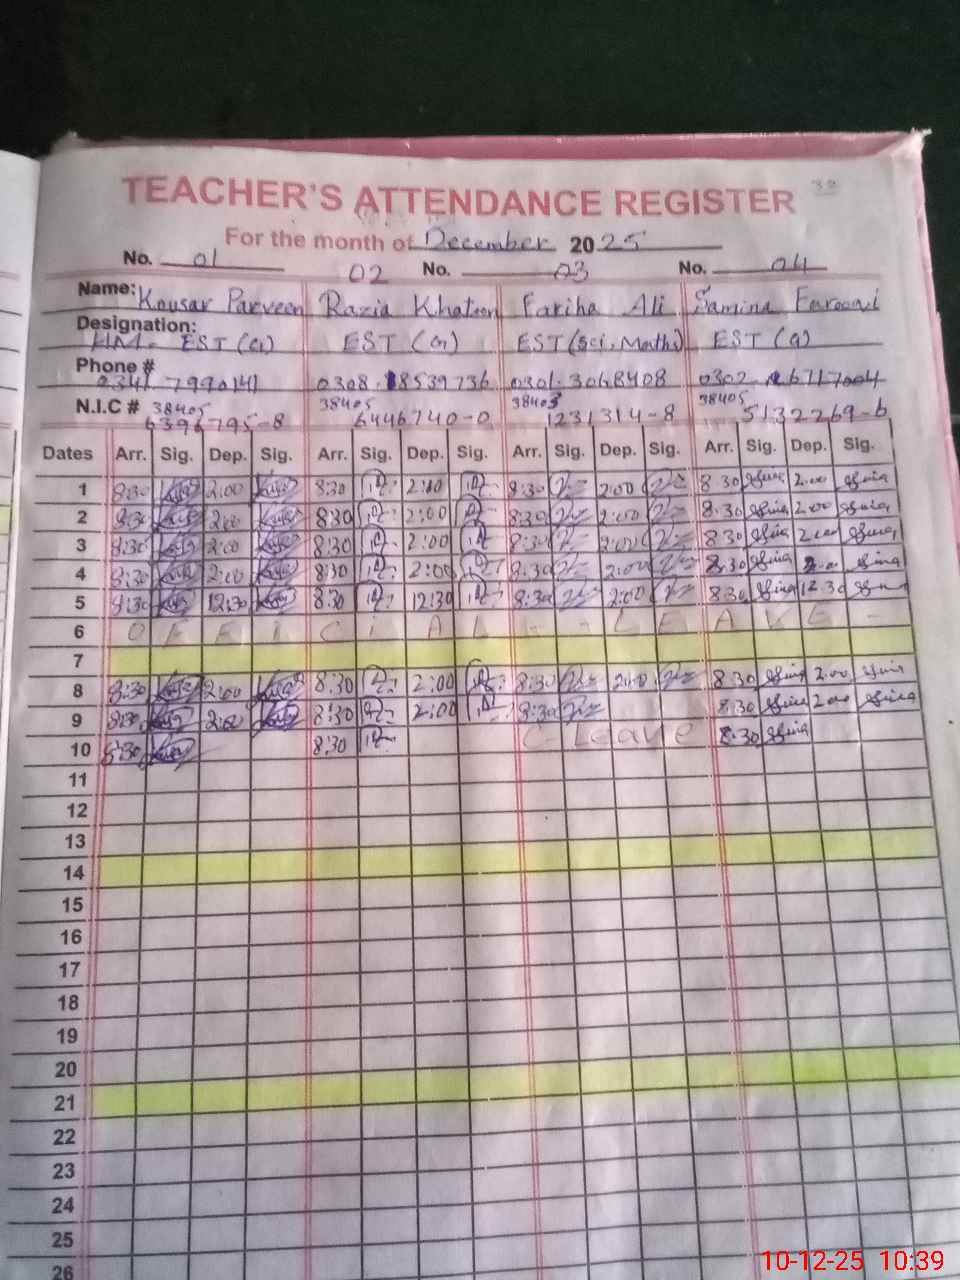 TEACHER'S ATTENDANCE REGISTER 32
For the month of December 2025
No. 01 02 No. 03 No. 04
Name: Kousar Parveen Razia Khatoon Fariha Ali Samina Farooqi
Designation:
H.M. EST (G) EST (G) EST (Sci. Maths) EST (G)
Phone #
0341 7990141 0308 18539736 0301 3068408 0302 6717004
N.I.C # 38405 38405 38405 38405
6396795-8 6446740-0 1231314-8 5132269-6
Dates Arr. Sig. Dep. Sig. Arr. Sig. Dep. Sig. Arr. Sig. Dep. Sig. Arr. Sig. Dep. Sig.
1 8:30 2:00 8:30 2:00 8:30 2:00 8 30 2.00
2 8:30 2:00 8:30 2:00 8:30 2:00 8.30 2.00
3 8:30 2:00 8:30 2:00 8:30 2:00 8 30 2.00
4 8:30 2:00 8:30 2:00 8:30 2:00 8.30
5 8:30 12:30 8:30 12:30 8:30 2:00 8.30 12.30
6 O F F I C I A L - - L E A V E -
7
8 8:30 2:00 8:30 2:00 8:30 2:00 8 30 2.00
9 8:30 2:00 8:30 2:00 8:30 8.30 2.00
10 8:30 8:30 C- Leave 8.30
11
12
13
14
15
16
17
18
19
20
21
22
23
24
25
26
10-12-25 10:39